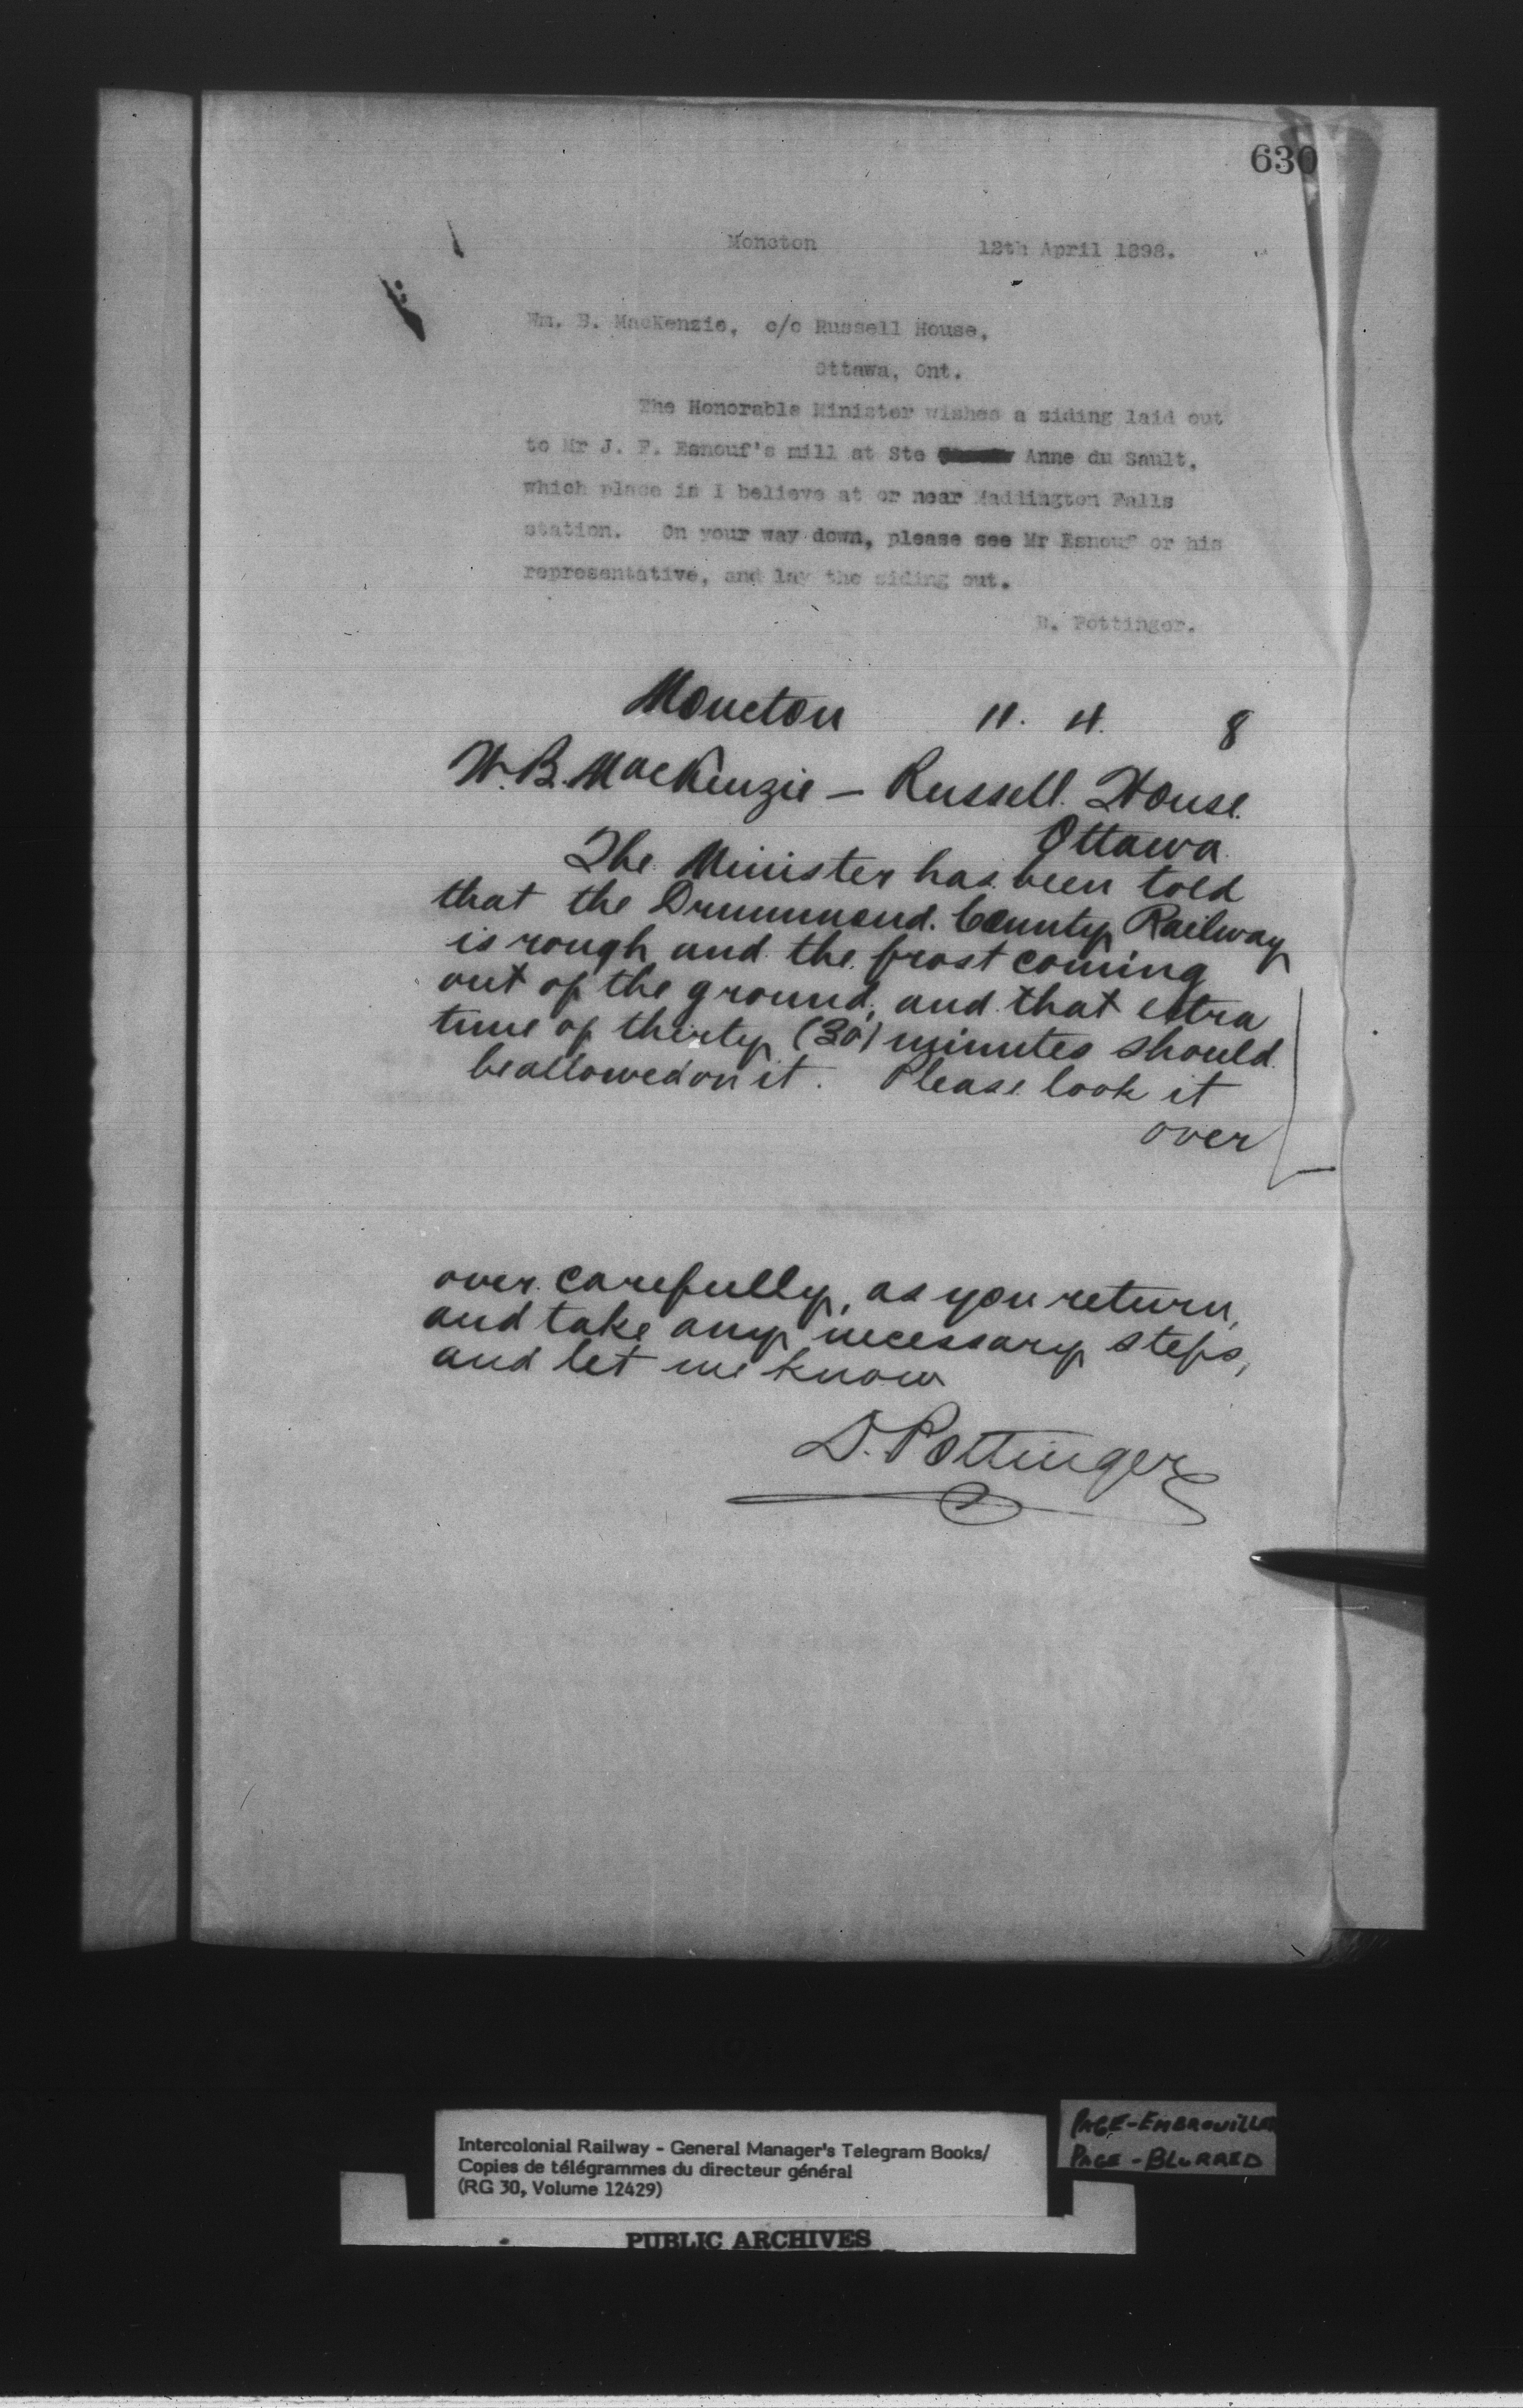 630
Moncton 12th April 1898.
Wm. B. MacKenzie, c/o Russell House,
Ottawa, Ont.
The Honorable Minister wishes a siding laid out
to Mr J. F. Esnouf's mill at Ste Anne du Sault,
which place is I believe at or near Maddington Falls
station. On your way down, please see Mr Esnouf or his
representative, and lay the siding out.
D. Pottinger.
Moncton 11. 4. 8
W. B. MacKenzie – Russell House
Ottawa
The Minister has been told
that the Drummond County Railway
is rough and the frost coming
out of the ground, and that extra
time of thirty (30) minutes should
be allowed on it. Please look it
over
over carefully, as you return,
and take any necessary steps,
and let me know
D. Pottinger
Intercolonial Railway - General Manager's Telegram Books/
Copies de télégrammes du directeur général
(RG 30, Volume 12429)
PUBLIC ARCHIVES
PAGE-EMBROUILLE
PAGE-BLURRED